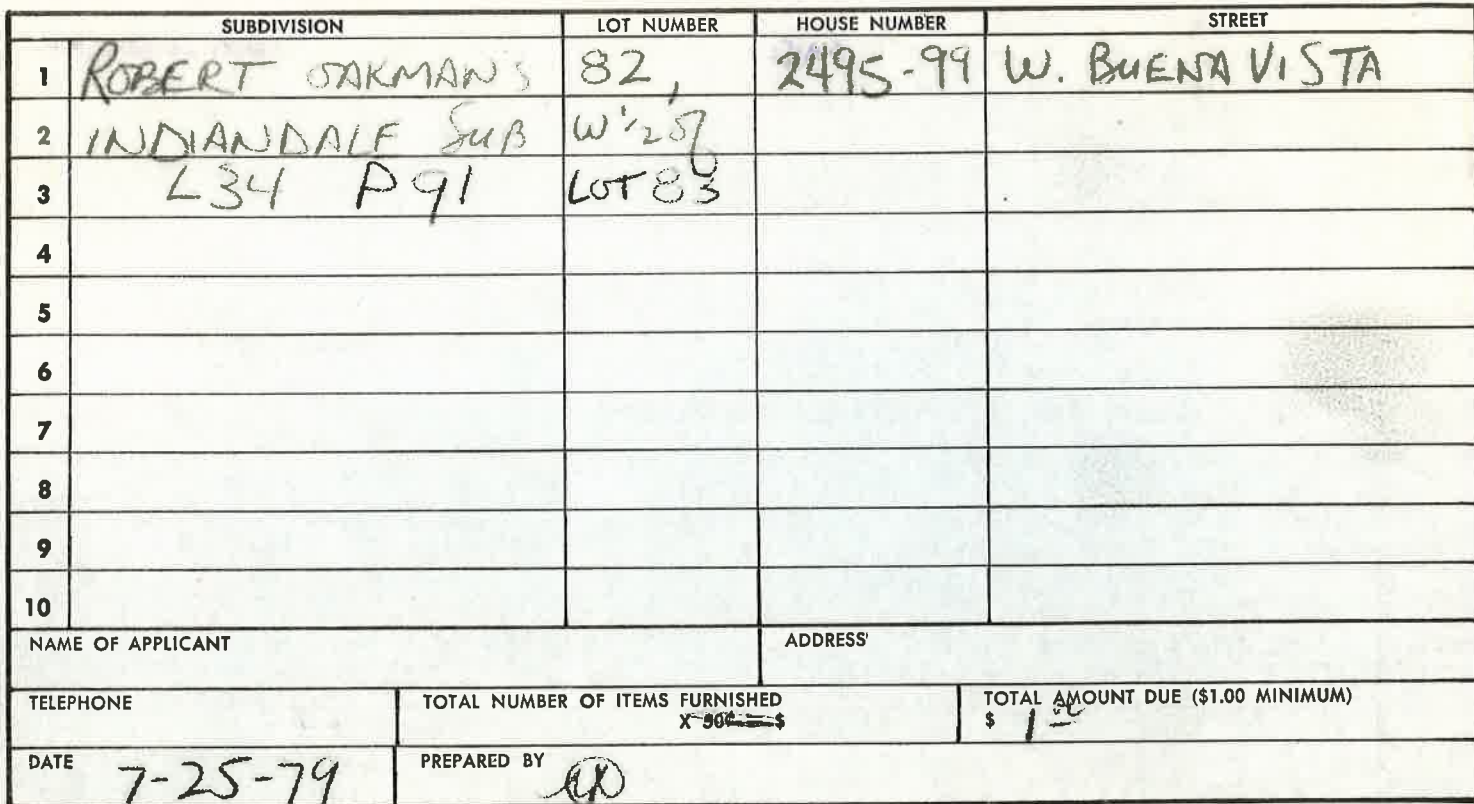 SUBDIVISION LOT NUMBER HOUSE NUMBER STREET
1 ROBERT OAKMANS 82, 2495-99 W. BUENA VISTA
2 INDIANDALE SUB W 1/2 of
3 L34 P91 LOT 83
4
5
6
7
8
9
10
NAME OF APPLICANT ADDRESS
TELEPHONE TOTAL NUMBER OF ITEMS FURNISHED TOTAL AMOUNT DUE ($1.00 MINIMUM)
X 50¢ = $ $ 1 00
DATE 7-25-79 PREPARED BY